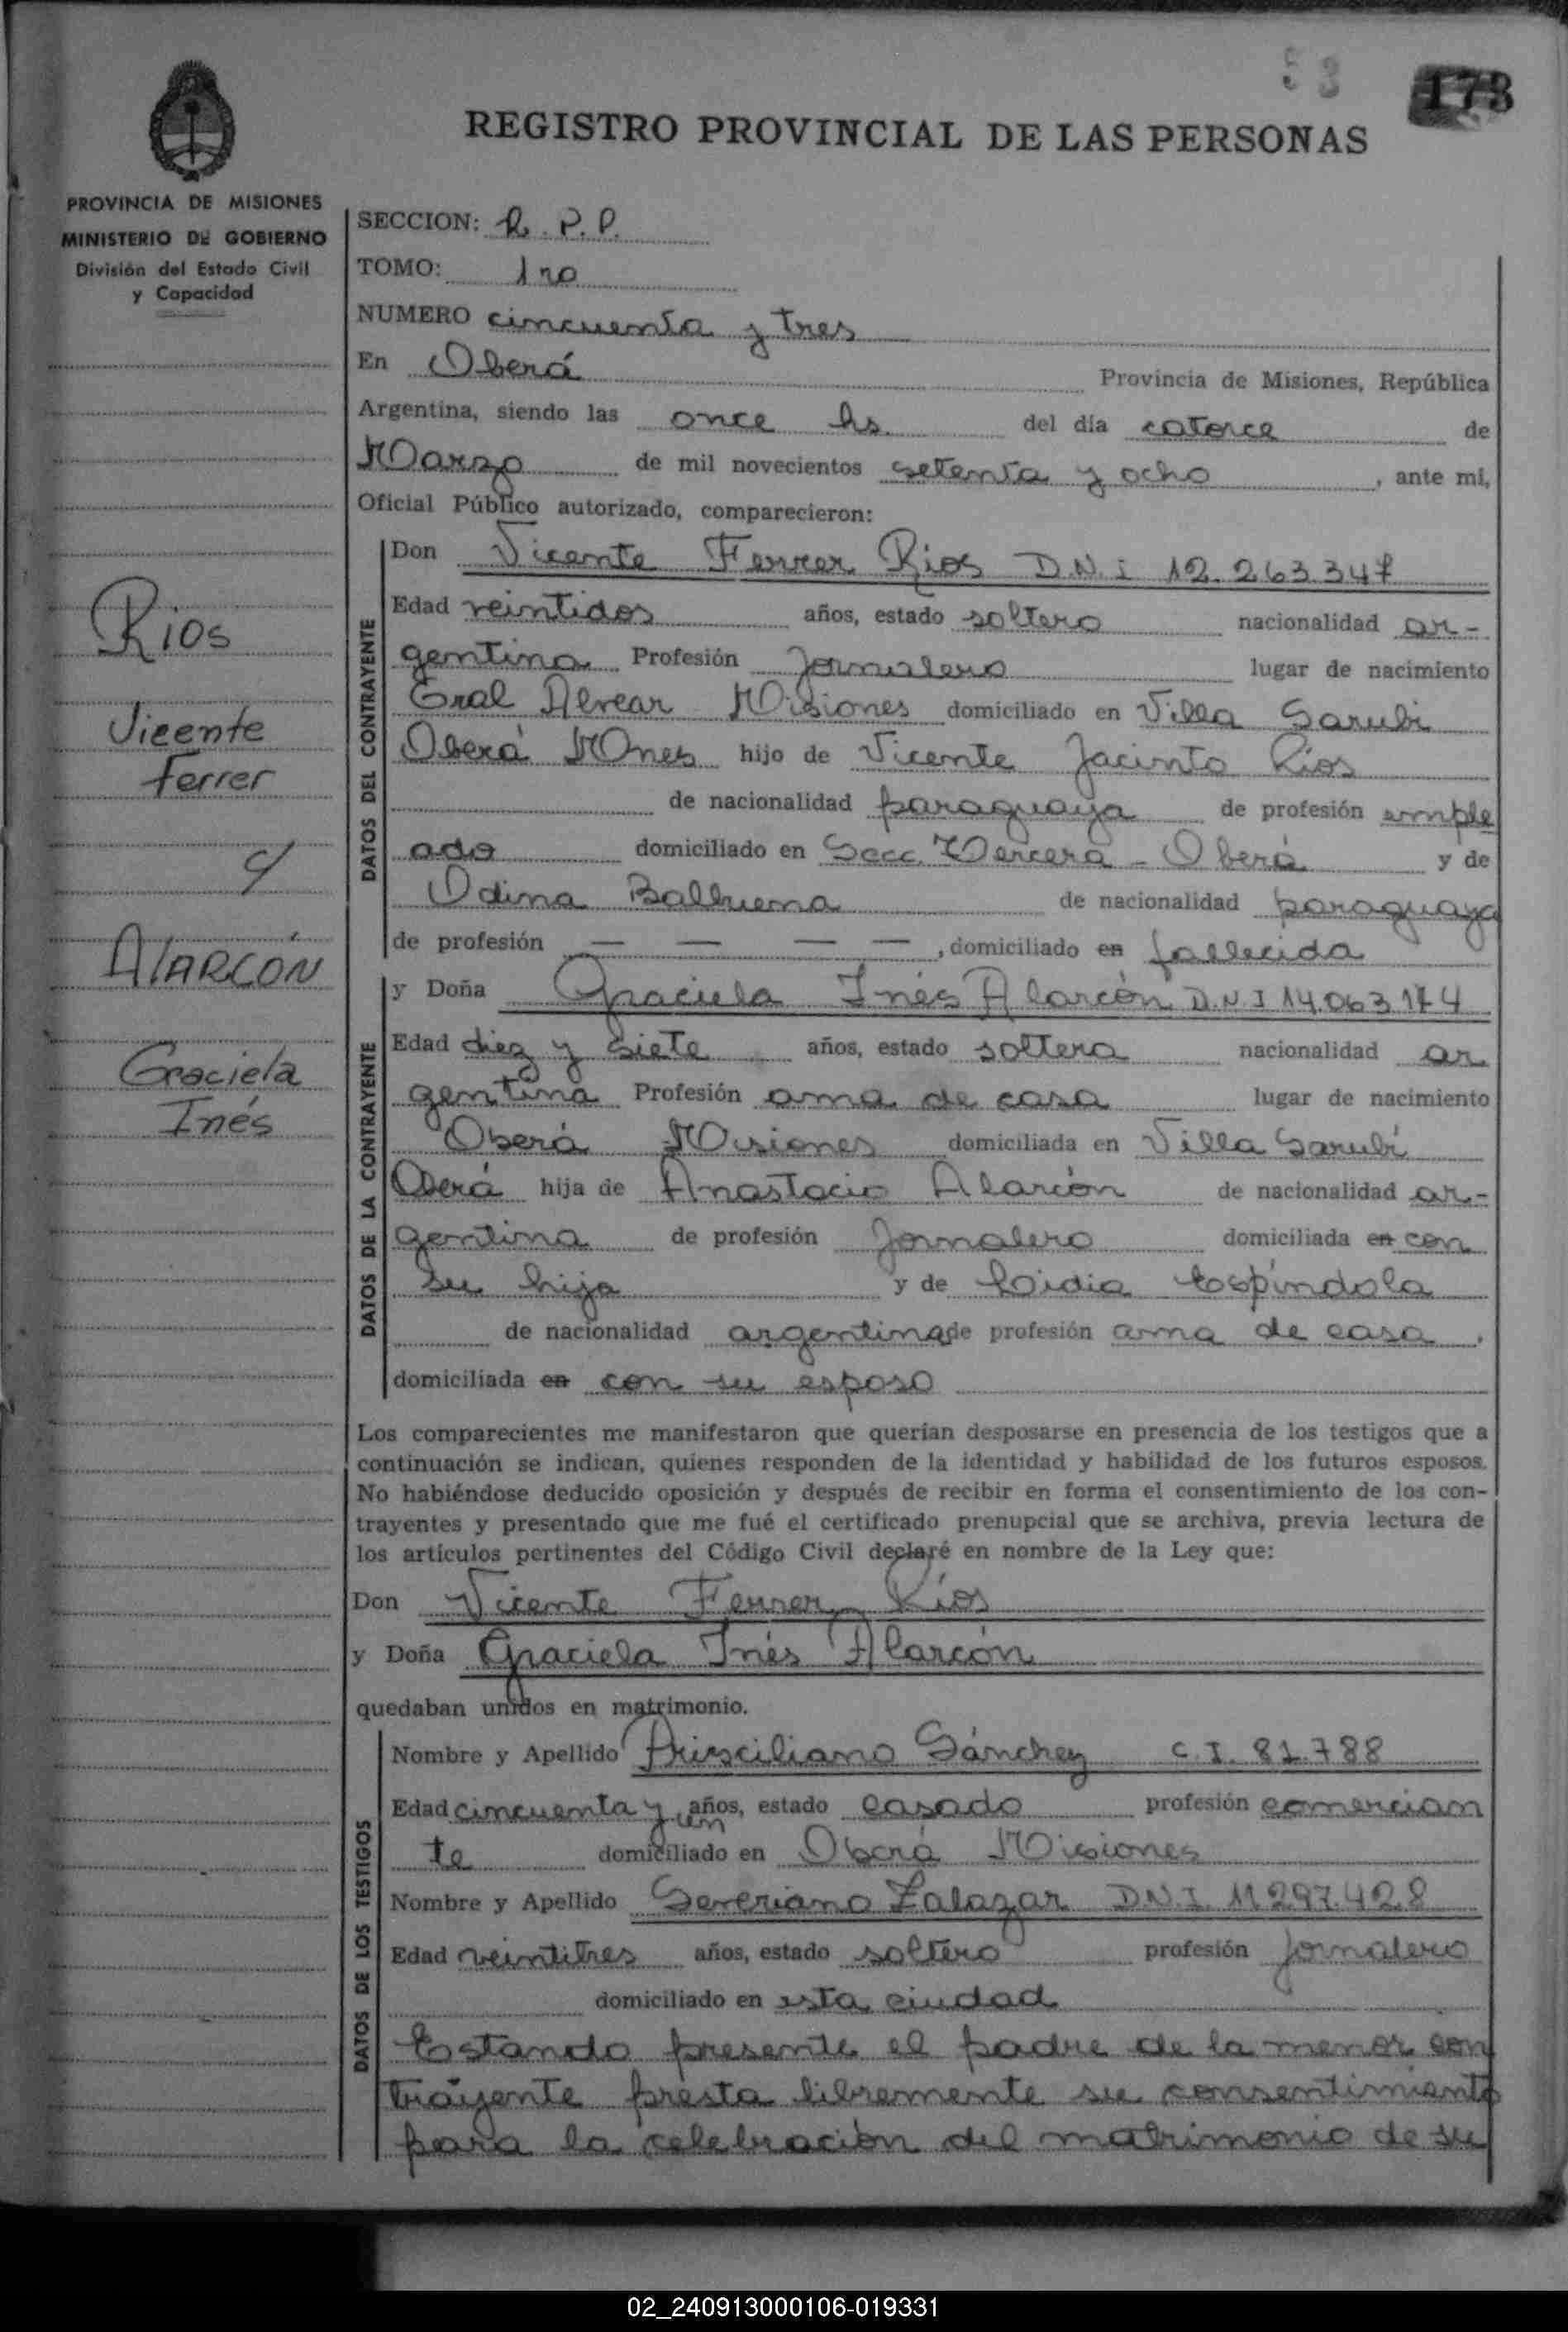 53
173
REGISTRO PROVINCIAL DE LAS PERSONAS
PROVINCIA DE MISIONES
MINISTERIO DE GOBIERNO
División del Estado Civil
y Capacidad
Rios
Vicente
Ferrer
c/
Alarcón
Graciela
Inés
SECCION: R. P. P.
TOMO: 1ro
NUMERO cincuenta y tres
En Oberá Provincia de Misiones, República
Argentina, siendo las once hs. del día catorce de
Marzo de mil novecientos setenta y ocho, ante mi,
Oficial Público autorizado, comparecieron:
DATOS DEL CONTRAYENTE
Don Vicente Ferrer Rios D.N.i 12.263.347
Edad veintidos años, estado soltero nacionalidad ar-
gentina Profesión Jornalero lugar de nacimiento
Gral Alvear Misiones domiciliado en Villa Sarubi
Oberá Mones hijo de Vicente Jacinto Rios
de nacionalidad paraguaya de profesión emple
ado domiciliado en Secc. Tercera - Oberá y de
Odina Balbuena de nacionalidad paraguaya
de profesión — — — —, domiciliado en fallecida
DATOS DE LA CONTRAYENTE
y Doña Graciela Inés Alarcón D.N.I 14.063.174
Edad diez y siete años, estado soltera nacionalidad ar
gentina Profesión ama de casa lugar de nacimiento
Oberá Misiones domiciliada en Villa Sarubi
Oberá hija de Anastacio Alarcón de nacionalidad ar-
gentina de profesión Jornalero domiciliada en con
su hija y de Lidia Espíndola
de nacionalidad argentina de profesión ama de casa,
domiciliada en con su esposo
Los comparecientes me manifestaron que querían desposarse en presencia de los testigos que a
continuación se indican, quienes responden de la identidad y habilidad de los futuros esposos.
No habiéndose deducido oposición y después de recibir en forma el consentimiento de los con-
trayentes y presentado que me fué el certificado prenupcial que se archiva, previa lectura de
los artículos pertinentes del Código Civil declaré en nombre de la Ley que:
Don Vicente Ferrer Ríos
y Doña Graciela Inés Alarcón
quedaban unidos en matrimonio.
DATOS DE LOS TESTIGOS
Nombre y Apellido Prisciliano Sánchez C.I. 81.788
Edad cincuenta y un años, estado casado profesión comercian
te domiciliado en Oberá Misiones
Nombre y Apellido Severiano Zalazar D.N.I. 11.297.428
Edad veintitres años, estado soltero profesión Jornalero
domiciliado en esta ciudad
Estando presente el padre de la menor con
trayente presta libremente su consentimiento
para la celebración del matrimonio de su
02_240913000106-019331